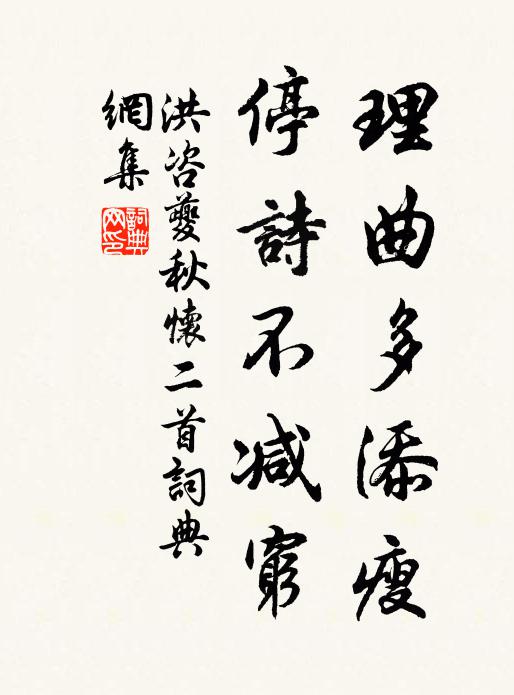 理曲多添瘦
停詩不减窮
洪咨夔秋懷二首詞典
網集
詞典网印